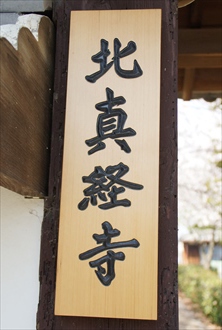 北真経寺